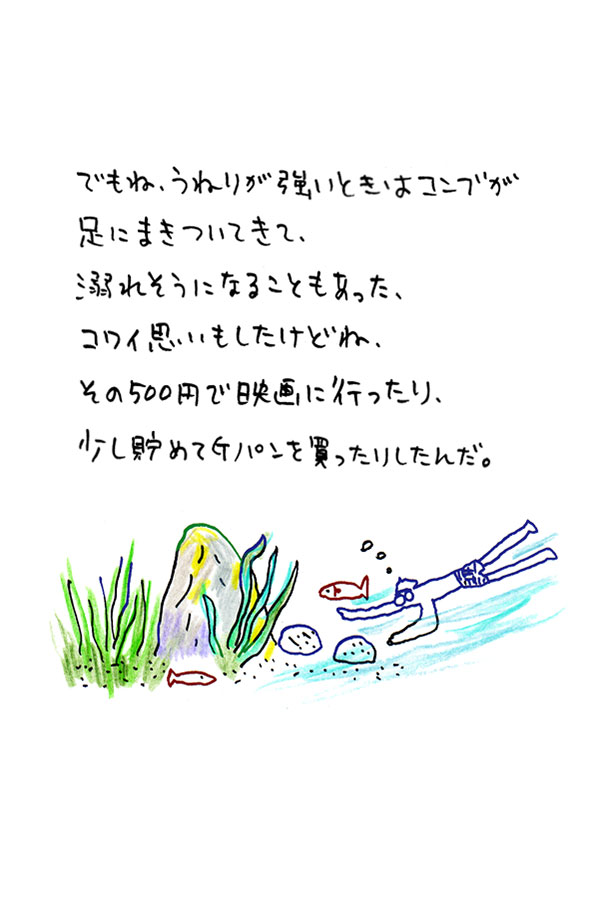 でもね、うねりが強いときはコンブが
足にまきついてきて、
溺れそうになることもあった、
コワイ思いもしたけどね、
その500円で映画に行ったり、
少し貯めてGパンを買ったりしたんだ。